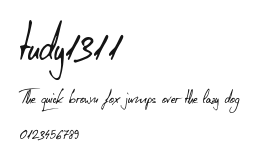 tudy1311
The quick brown fox jumps over the lazy dog
0123456789